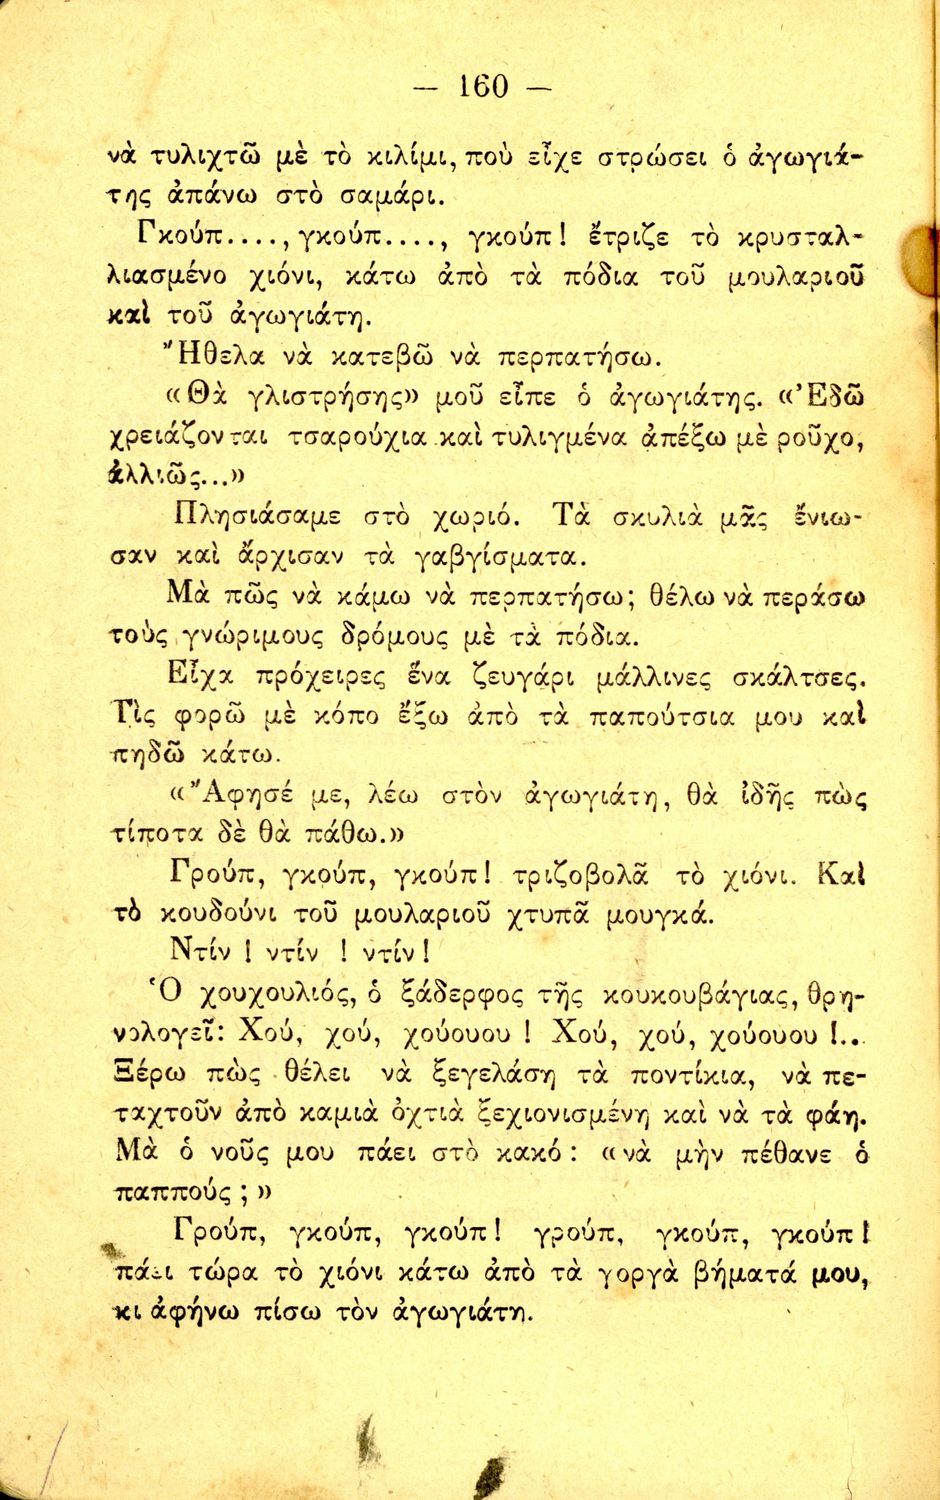 — 160 —
νὰ τυλιχτῶ μὲ τὸ κιλίμι, ποὺ εἶχε στρώσει ὁ ἀγωγιά-
της ἀπάνω στὸ σαμάρι.
Γκούπ...., γκούπ...., γκούπ! ἔτριζε τὸ κρυσταλ-
λιασμένο χιόνι, κάτω ἀπὸ τὰ πόδια τοῦ μουλαριοῦ
καὶ τοῦ ἀγωγιάτη.
Ἤθελα νὰ κατεβῶ νὰ περπατήσω.
«Θὰ γλιστρήσης» μοῦ εἶπε ὁ ἀγωγιάτης. «Ἐδῶ
χρειάζονται τσαρούχια καὶ τυλιγμένα ἀπέξω μὲ ροῦχο,
ἀλλιῶς...»
Πλησιάσαμε στὸ χωριό. Τὰ σκυλιὰ μᾶς ἔνιω-
σαν καὶ ἄρχισαν τὰ γαβγίσματα.
Μὰ πῶς νὰ κάμω νὰ περπατήσω; θέλω νὰ περάσω
τοὺς γνώριμους δρόμους μὲ τὰ πόδια.
Εἶχα πρόχειρες ἕνα ζευγάρι μάλλινες σκάλτσες.
Τὶς φορῶ μὲ κόπο ἔξω ἀπὸ τὰ παπούτσια μου καὶ
πηδῶ κάτω.
«Ἄφησέ με, λέω στὸν ἀγωγιάτη, θὰ ἰδῆς πὼς
τίποτα δὲ θὰ πάθω.»
Γρούπ, γκούπ, γκούπ! τριζοβολᾶ τὸ χιόνι. Καὶ
τὸ κουδούνι τοῦ μουλαριοῦ χτυπᾶ μουγκά.
Ντίν ! ντίν ! ντίν!
Ὁ χουχουλιός, ὁ ξάδερφος τῆς κουκουβάγιας, θρη-
νολογεῖ: Χού, χού, χούουου ! Χού, χού, χούουου !..
Ξέρω πὼς θέλει νὰ ξεγελάση τὰ ποντίκια, νὰ πε-
ταχτοῦν ἀπὸ καμιὰ ὀχτιὰ ξεχιονισμένη καὶ νὰ τὰ φάη.
Μὰ ὁ νοῦς μου πάει στὸ κακό : «νὰ μὴν πέθανε ὁ
παππούς ; »
Γρούπ, γκούπ, γκούπ! γρούπ, γκούπ, γκούπ!
πάει τώρα τὸ χιόνι κάτω ἀπὸ τὰ γοργὰ βήματά μου,
κι ἀφήνω πίσω τὸν ἀγωγιάτη.